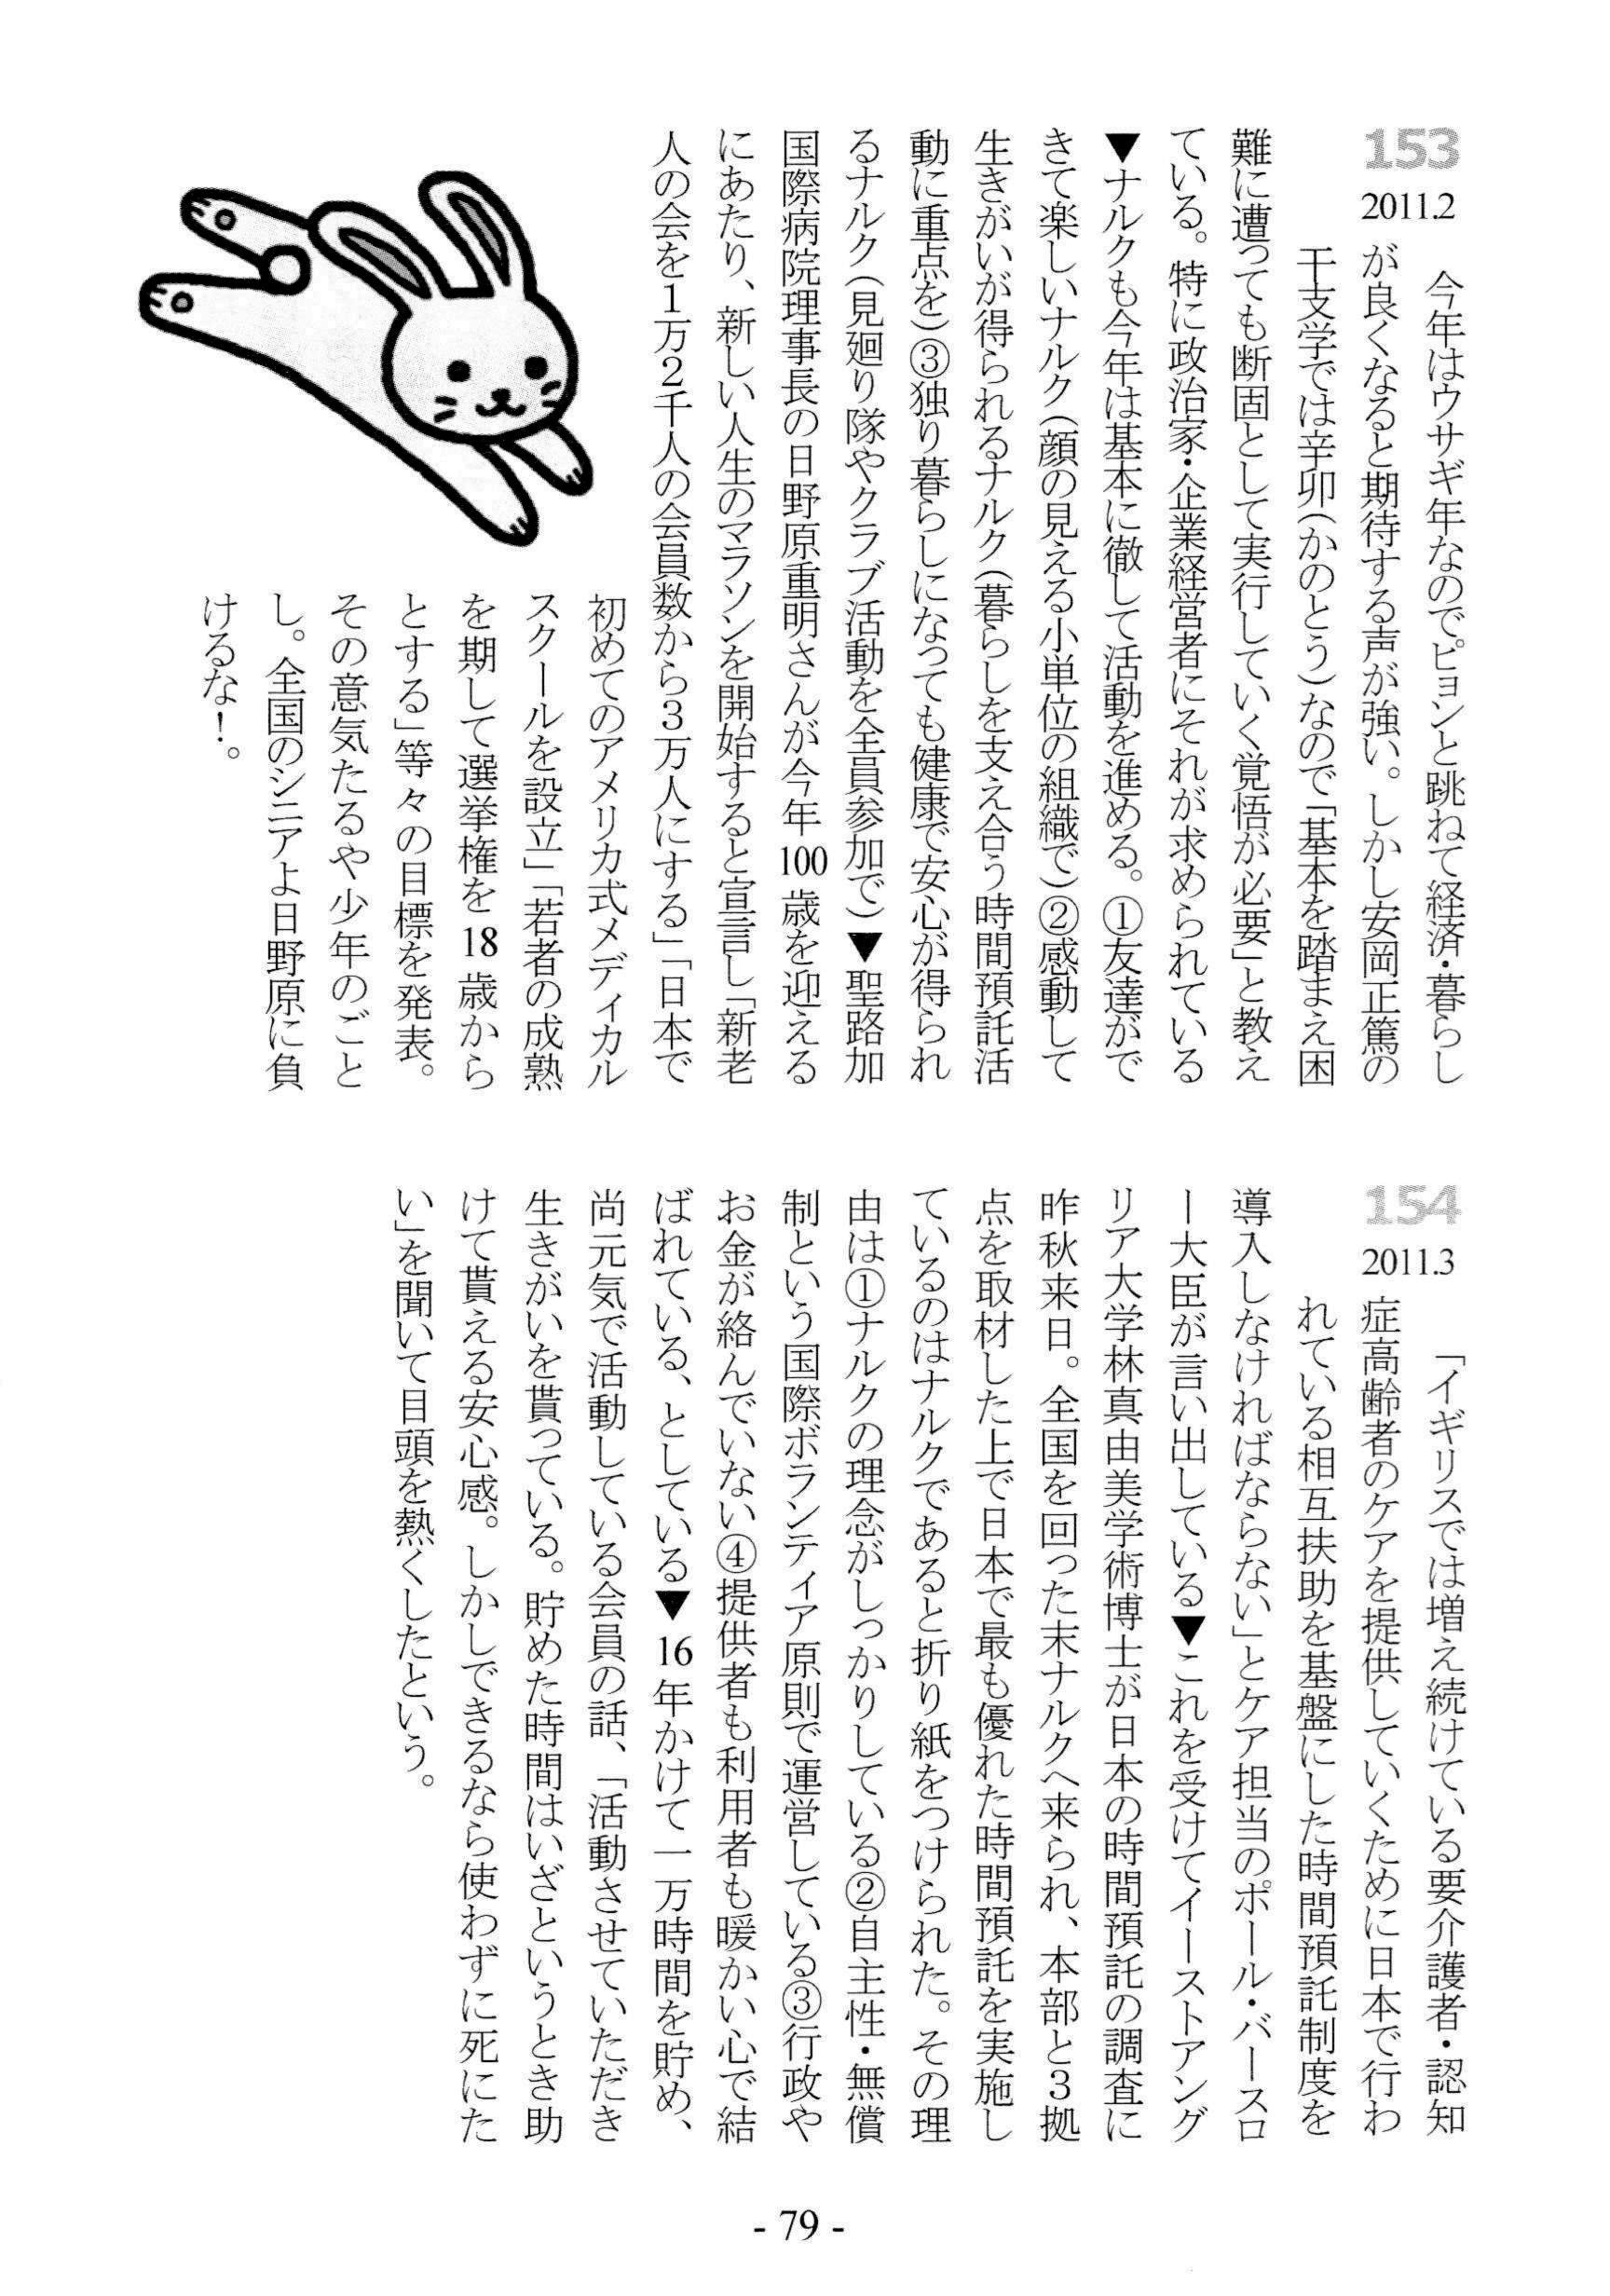 153
2011.2
今年はウサギ年なのでピョンと跳ねて経済・暮らし
が良くなると期待する声が強い。しかし安岡正篤の
干支学では辛卯(かのとう)なので「基本を踏まえ困
難に遭っても断固として実行していく覚悟が必要」と教え
ている。特に政治家・企業経営者にそれが求められている
▼ナルクも今年は基本に徹して活動を進める。①友達がで
きて楽しいナルク(顔の見える小単位の組織で)②感動して
生きがいが得られるナルク(暮らしを支え合う時間預託活
動に重点を)③独り暮らしになっても健康で安心が得られ
るナルク(見廻り隊やクラブ活動を全員参加で)▼聖路加
国際病院理事長の日野原重明さんが今年100歳を迎える
にあたり、新しい人生のマラソンを開始すると宣言し「新老
人の会を1万2千人の会員数から3万人にする」「日本で
初めてのアメリカ式メディカル
スクールを設立」「若者の成熟
を期して選挙権を18歳から
とする」等々の目標を発表。
その意気たるや少年のごと
し。全国のシニアよ日野原に負
けるな!。
154
2011.3
「イギリスでは増え続けている要介護者・認知
症高齢者のケアを提供していくために日本で行わ
れている相互扶助を基盤にした時間預託制度を
導入しなければならない」とケア担当のポール・バースロ
ー大臣が言い出している▼これを受けてイーストアング
リア大学林真由美学術博士が日本の時間預託の調査に
昨秋来日。全国を回った末ナルクへ来られ、本部と3拠
点を取材した上で日本で最も優れた時間預託を実施し
ているのはナルクであると折り紙をつけられた。その理
由は①ナルクの理念がしっかりしている②自主性・無償
制という国際ボランティア原則で運営している③行政や
お金が絡んでいない④提供者も利用者も暖かい心で結
ばれている、としている▼16年かけて一万時間を貯め、
尚元気で活動している会員の話、「活動させていただき
生きがいを貰っている。貯めた時間はいざというとき助
けて貰える安心感。しかしできるなら使わずに死にた
い」を聞いて目頭を熱くしたという。
- 79 -